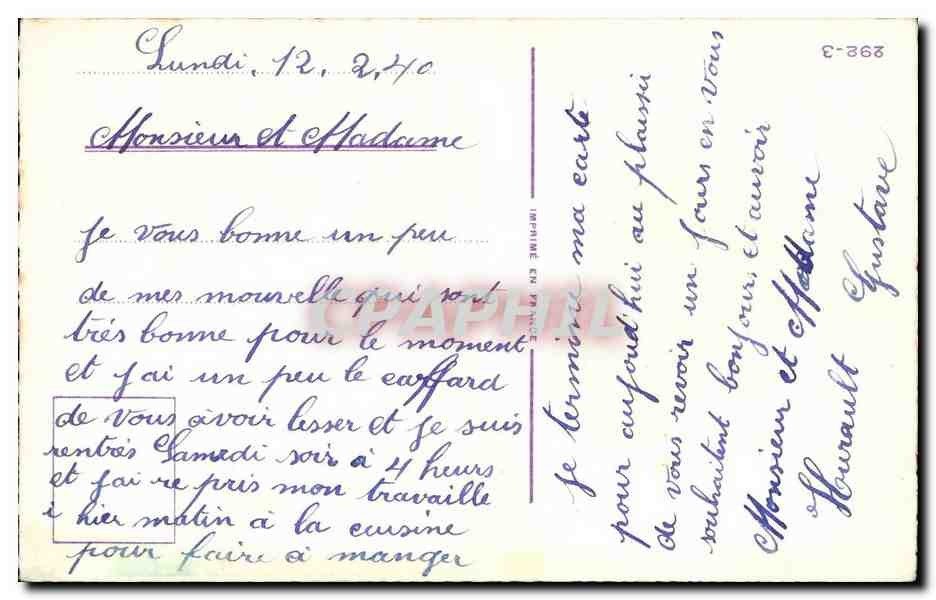 Lundi, 12, 2,40
Monsieur et Madame
Je vous bonne un peu
de mes mouvelle qui sont
trés bonne pour le moment
et j'ai un peu le caffard
de vous avoir lesser et je suis
rentrés Samedi soir a 4 heurs
et j'ai re pris mon travaille
i hier matin a la cuisine
pour faire a manger
je termine ma carte
pour aujoud'hui au plaisir
de vous revoir un jours en vous
souhaitent bonjour, et auvoir
Monsieur et Madame
Hurault Gustave
292-3
IMPRIMÉ EN FRANCE
CPAPHIL